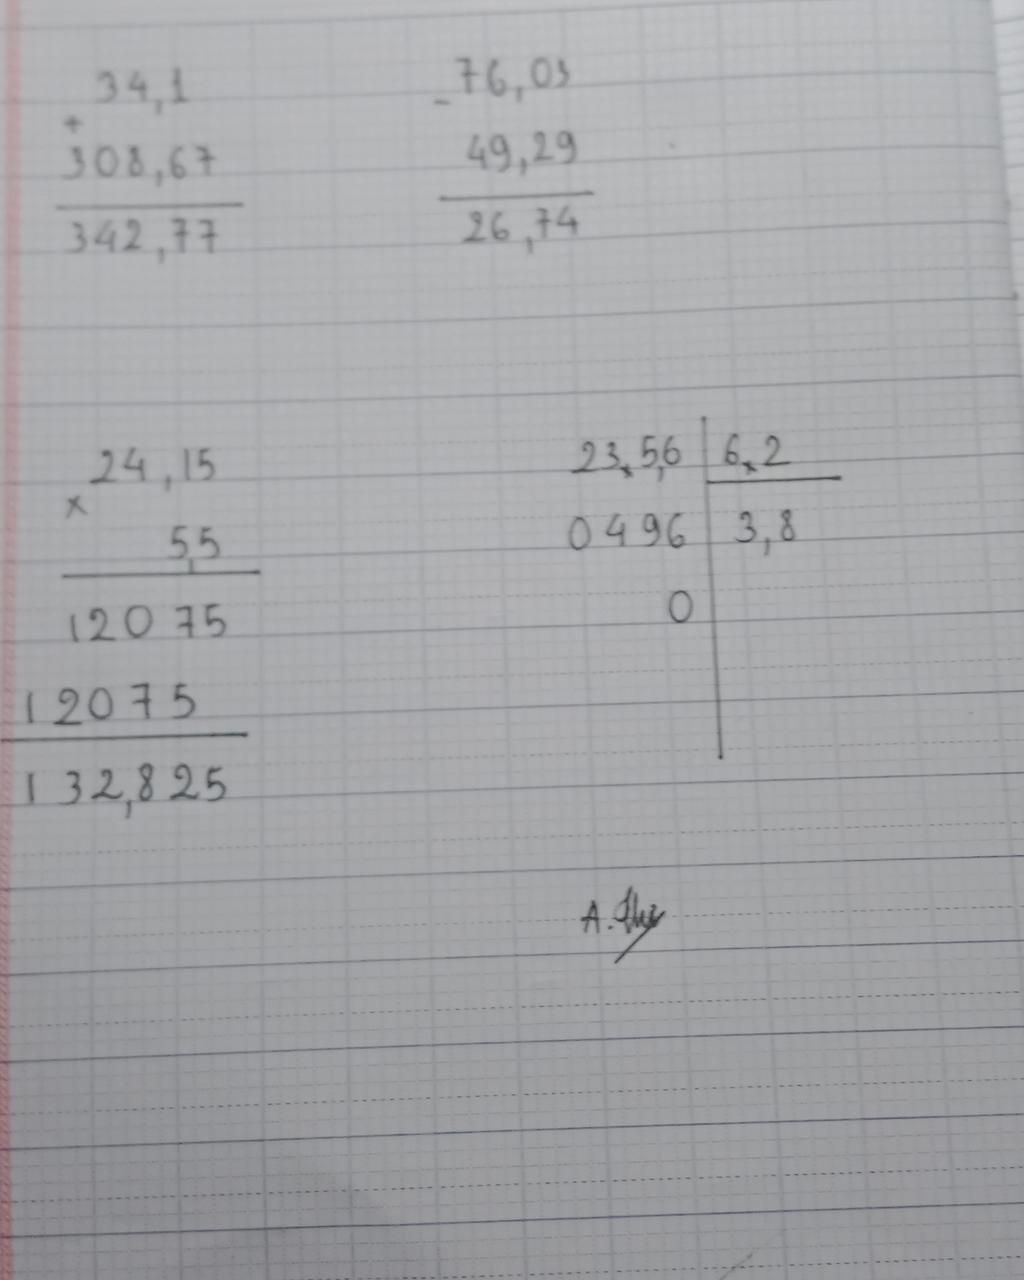 34,1
+
308,67
342,77
- 76,03
49,29
26,74
24,15
x
5,5
12075
12075
132,825
23,5,6 6,2
0496 3,8
0
A.